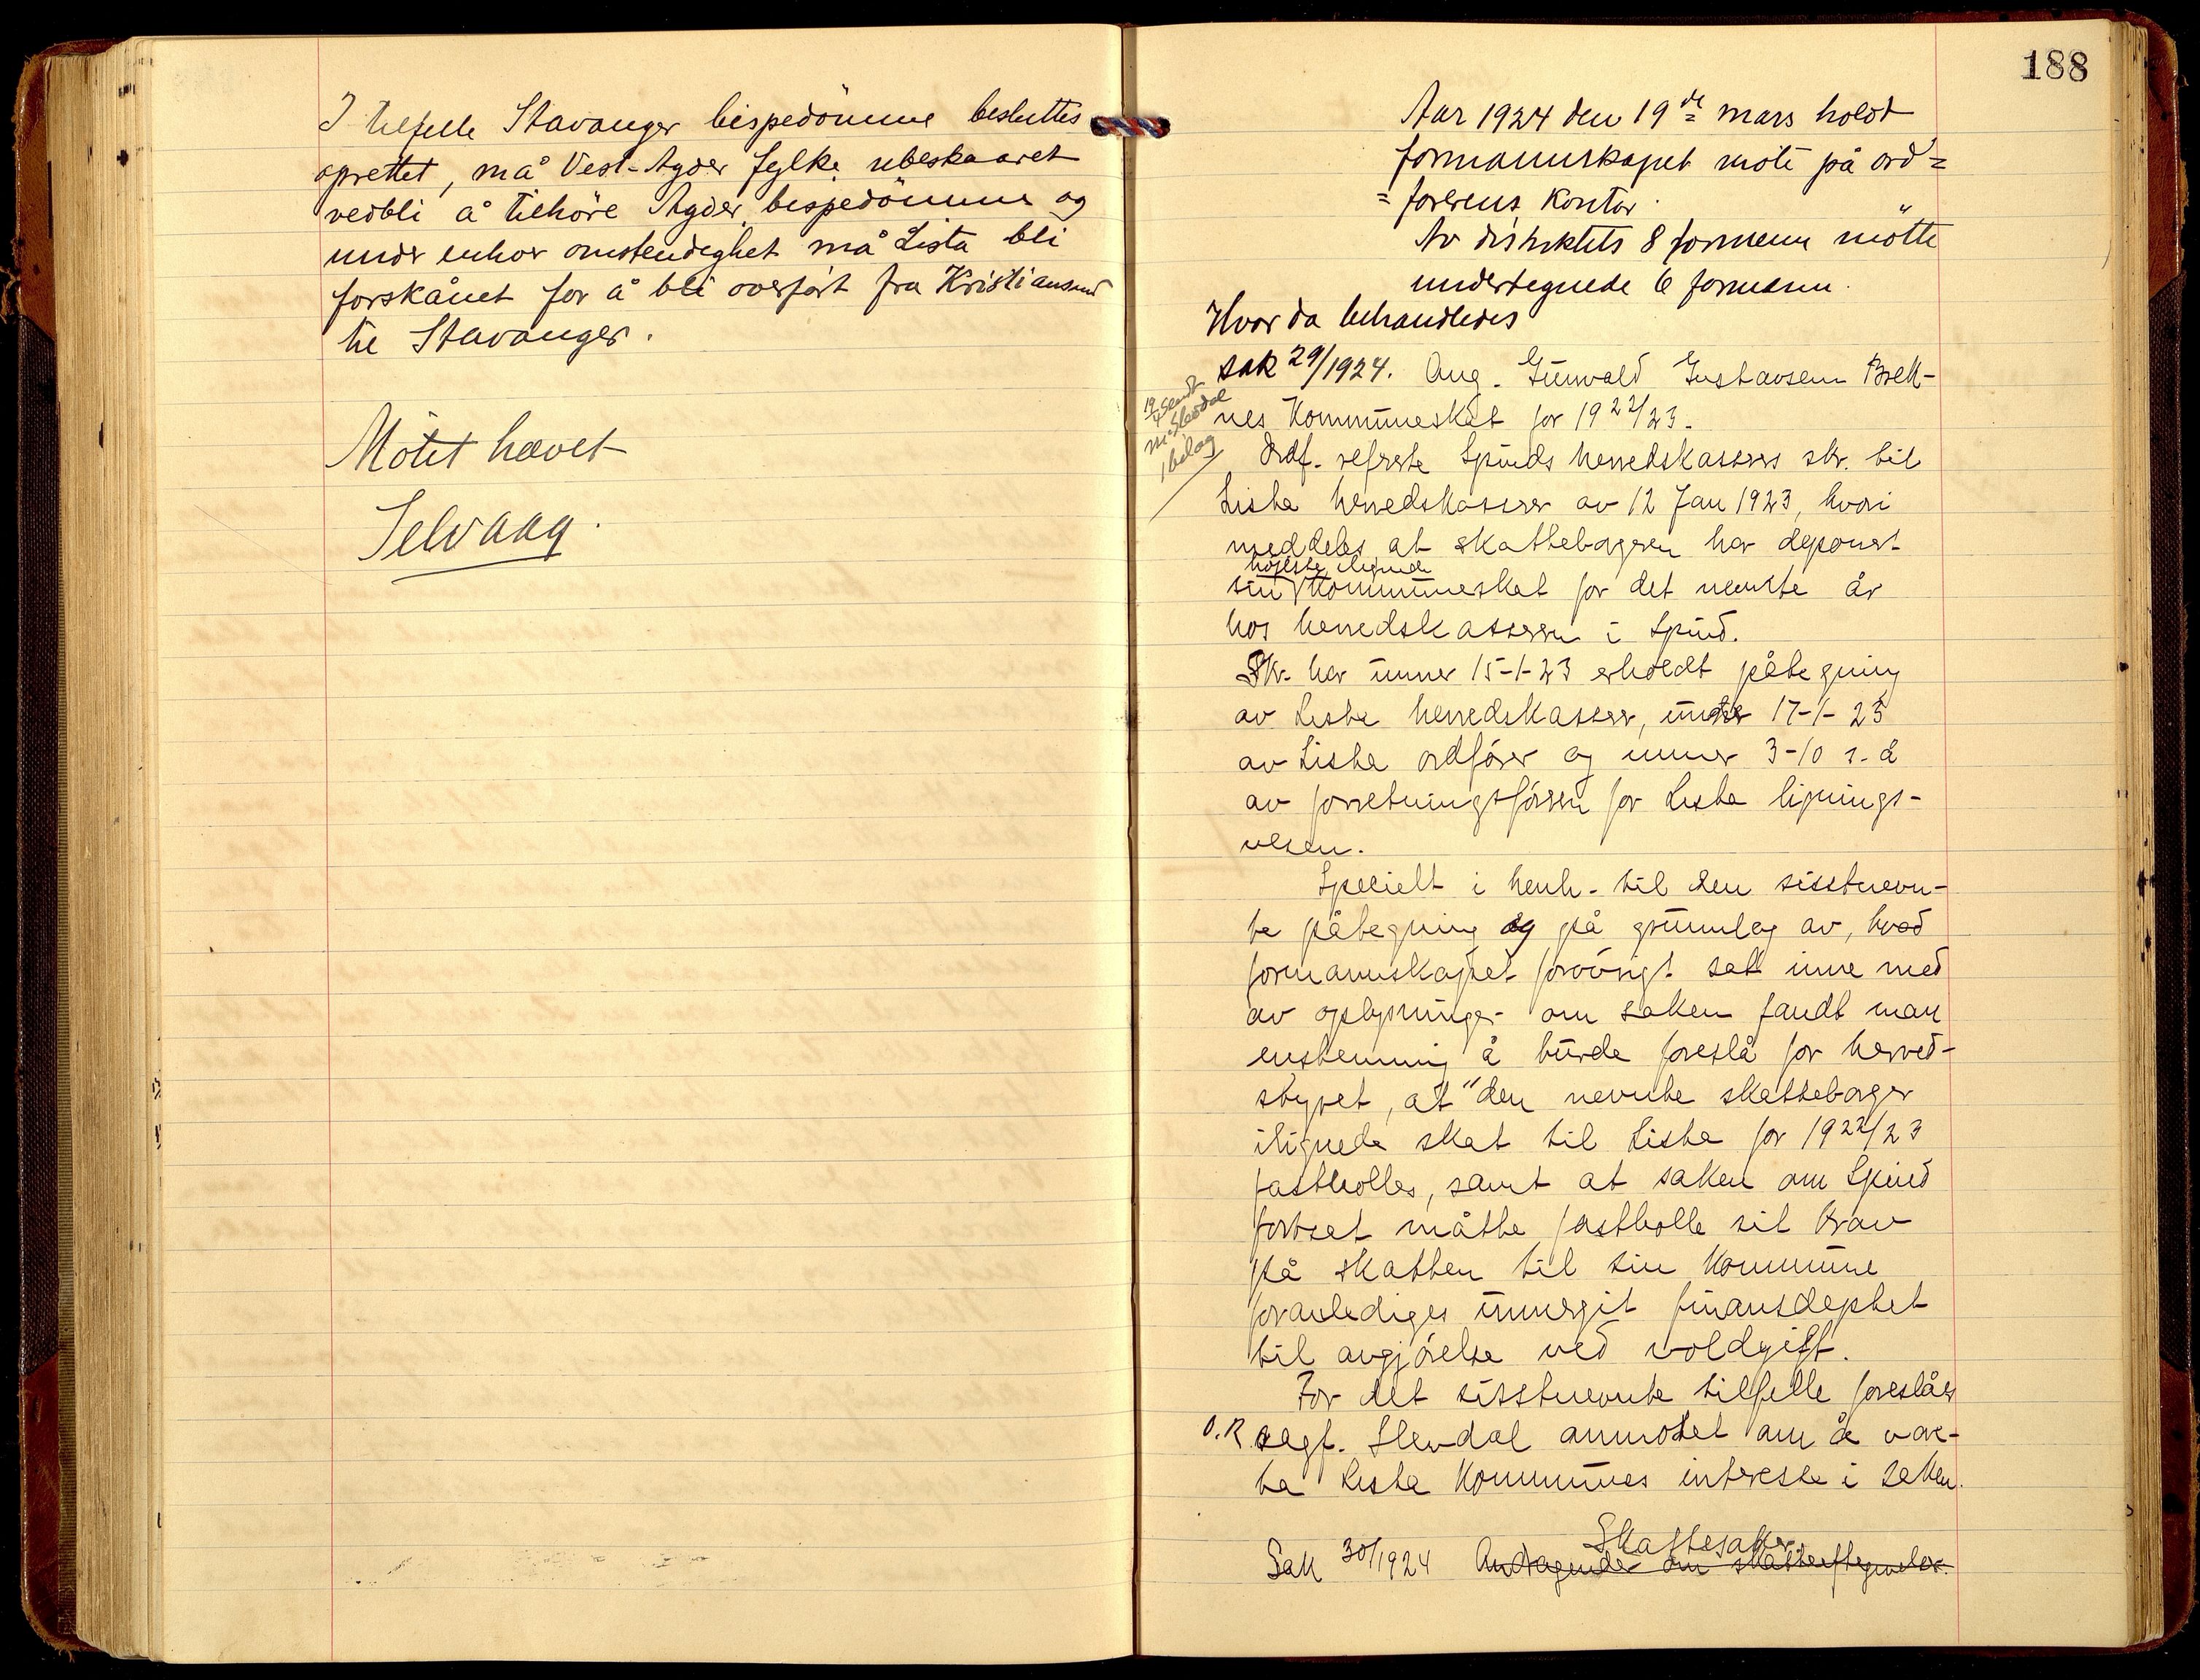 I tilfelle Stavanger bispedömme besluttes
oprettet, må Vest-Agder fylke ubeskaaret
vedbli å tilhöre Agder bispedömme og
under enhver omstendighet må Lista bli
forskånet for å bli overfört fra Kristiansand
til Stavanger.
Mötet hævet
Selvaag.
188
Aar 1924 den 19de mars holdt
formannskapet möte på ord=
=förerens kontor.
Av distriktets 8 formenn mötte
undertegnede 6 formenn.
Hvor da behandledes
sak 29/1924. Aug. Gunvald Gustavsen Brek-
nes kommuneskat for 1922/23.
19/4 sendt
m. Slevdal
1 bilag
Ordf. referte Spinds herredskasserers skr. til
Lista herredskasserer av 12 Jan 1923, hvori
meddeles at skatteborgeren har deponert
höieste ilignede
sin kommuneskat for det nevnte år
hos herredskassereren i Spind.
Skr. har unner 15-1-23 erholdt påtegning
av Lista herredskasserer, under 17-1-23
av Lista ordförer og unner 3-10 s. å
av forretningsföreren for Lista lignings-
vesen.
Specielt i henh. til den sisstnevn-
te påtegning og på grunnlag av, hvad
formannskapet forövrigt satt inne med
av oplysninger om saken fandt man
enstemmig å burde foreslå for herred-
styret, at "den nevnte skatteborger
ilignede skat til Lista for 1922/23
fastholles, samt at saken om Spind
fortsat måtte fastholle sit krav
på skatten til sin kommune
foranlediges innergit finansdeptet
til avgjörelse ved voldgift.
For det sisstnevnte tilfelle foreslåes
O.R. sagf. Slevdal anmodet om å vare-
ta Lista kommunes interesse i saken.
Skattesaker
Sak 30/1924 Andragender om skatteeftergivelse.